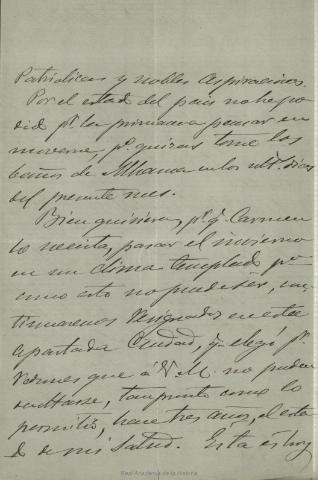 Patrioticas y nobles aspiraciones.
Por el estado del pais no he po
dido pr. la primavera pensar en
moverme, pº. quizas tome los
baños de Alhama en los ults. dias
del presente mes.
Bien quisiera, pr. q. Carmen
lo necesita, pasar el invierno
en un clima templado pero
como esto no puede ser, con
tinuaremos resignados en esta
apartada Ciudad, q. elegí pr.
razones que á V. M. no pueden
ocultarse, tan pronto como lo
permitió, hace tres años, el esta
do de mi salud. Esta es hoy
Real Academia de la Historia